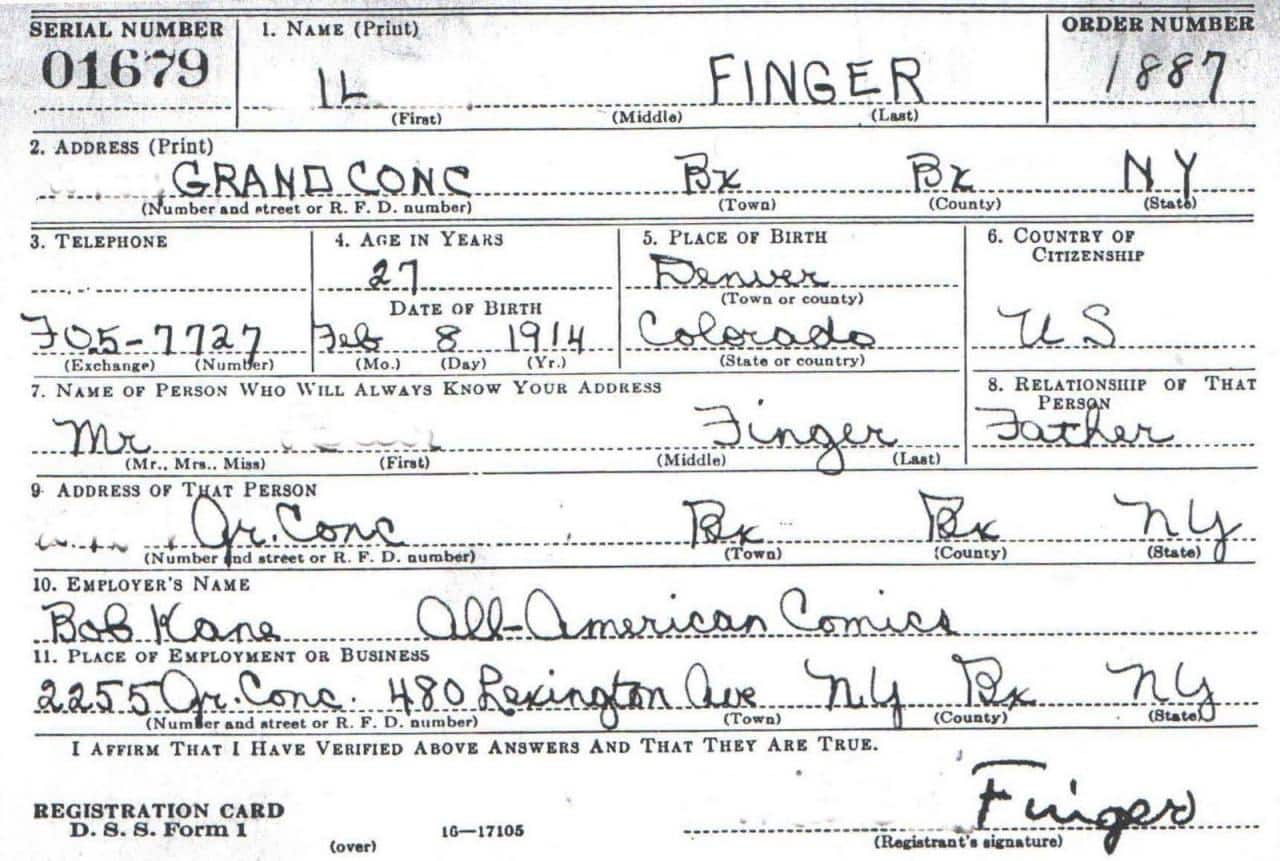 SERIAL NUMBER 1. NAME (Print) ORDER NUMBER
01679 IL FINGER 1887
(First) (Middle) (Last)
2. ADDRESS (Print)
GRAND CONC Bx Bx NY
(Number and street or R. F. D. number) (Town) (County) (State)
3. TELEPHONE 4. AGE IN YEARS 5. PLACE OF BIRTH 6. COUNTRY OF CITIZENSHIP
27 Denver
DATE OF BIRTH (Town or county)
FO5-7727 Feb 8 1914 Colorado US
(Exchange) (Number) (Mo.) (Day) (Yr.) (State or country)
7. NAME OF PERSON WHO WILL ALWAYS KNOW YOUR ADDRESS 8. RELATIONSHIP OF THAT PERSON
Mr Finger Father
(Mr., Mrs., Miss) (First) (Middle) (Last)
9. ADDRESS OF THAT PERSON
Gr. Conc Bx Bx NY
(Number and street or R. F. D. number) (Town) (County) (State)
10. EMPLOYER'S NAME
Bob Kane All-American Comics
11. PLACE OF EMPLOYMENT OR BUSINESS
2255 Gr. Conc. 480 Lexington Ave N.Y Bx NY
(Number and street or R. F. D. number) (Town) (County) (State)
I AFFIRM THAT I HAVE VERIFIED ABOVE ANSWERS AND THAT THEY ARE TRUE.
Finger
REGISTRATION CARD
D. S. S. Form 1 16—17105 (Registrant's signature)
(over)